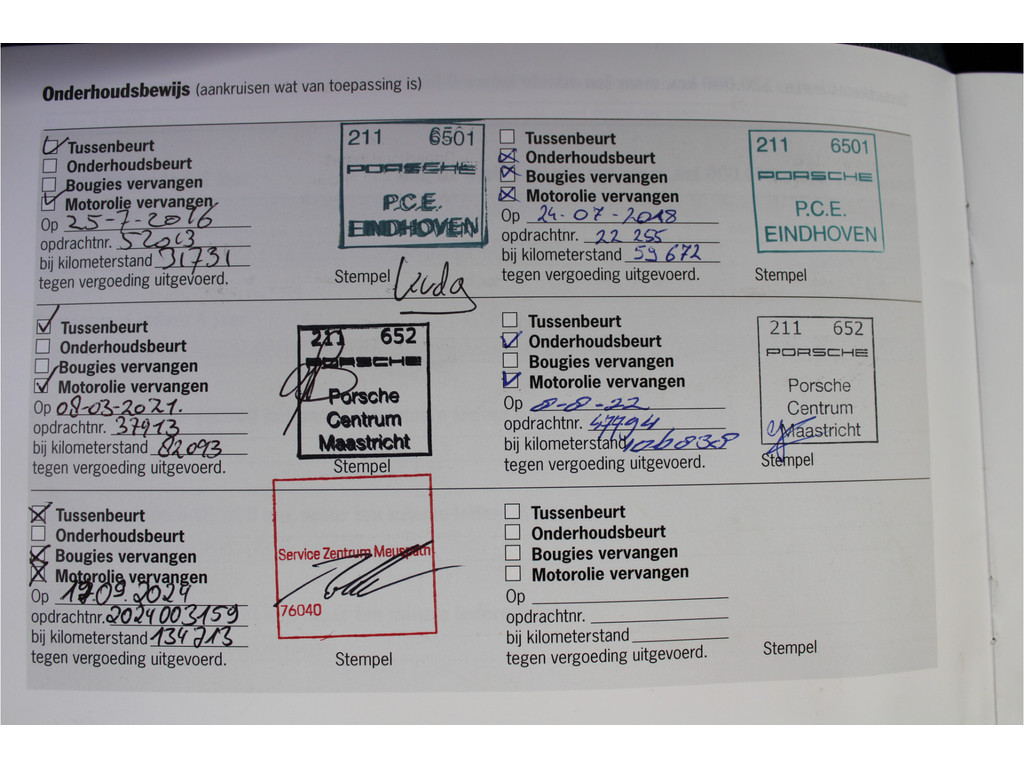 Onderhoudsbewijs (aankruisen wat van toepassing is)
Tussenbeurt
Onderhoudsbeurt
Bougies vervangen
Motorolie vervangen
Op 25-7-2016
opdrachtnr. 52013
bij kilometerstand 31731
tegen vergoeding uitgevoerd.
211 6501
PORSCHE
P.C.E.
EINDHOVEN
Stempel
Tussenbeurt
Onderhoudsbeurt
Bougies vervangen
Motorolie vervangen
Op 24-07-2018
opdrachtnr. 22 255
bij kilometerstand 59 672
tegen vergoeding uitgevoerd.
211 6501
PORSCHE
P.C.E.
EINDHOVEN
Stempel
Tussenbeurt
Onderhoudsbeurt
Bougies vervangen
Motorolie vervangen
Op 08-03-2021.
opdrachtnr. 37913
bij kilometerstand 82093
tegen vergoeding uitgevoerd.
211 652
PORSCHE
Porsche
Centrum
Maastricht
Stempel
Tussenbeurt
Onderhoudsbeurt
Bougies vervangen
Motorolie vervangen
Op 8-8-22
opdrachtnr. 47794
bij kilometerstand
tegen vergoeding uitgevoerd.
211 652
PORSCHE
Porsche
Centrum
Maastricht
Stempel
Tussenbeurt
Onderhoudsbeurt
Bougies vervangen
Motorolie vervangen
Op 17.09.2024
opdrachtnr. 2024003159
bij kilometerstand 134713
tegen vergoeding uitgevoerd.
Service Zentrum Meuspath
76040
Stempel
Tussenbeurt
Onderhoudsbeurt
Bougies vervangen
Motorolie vervangen
Op
opdrachtnr.
bij kilometerstand
tegen vergoeding uitgevoerd.
Stempel